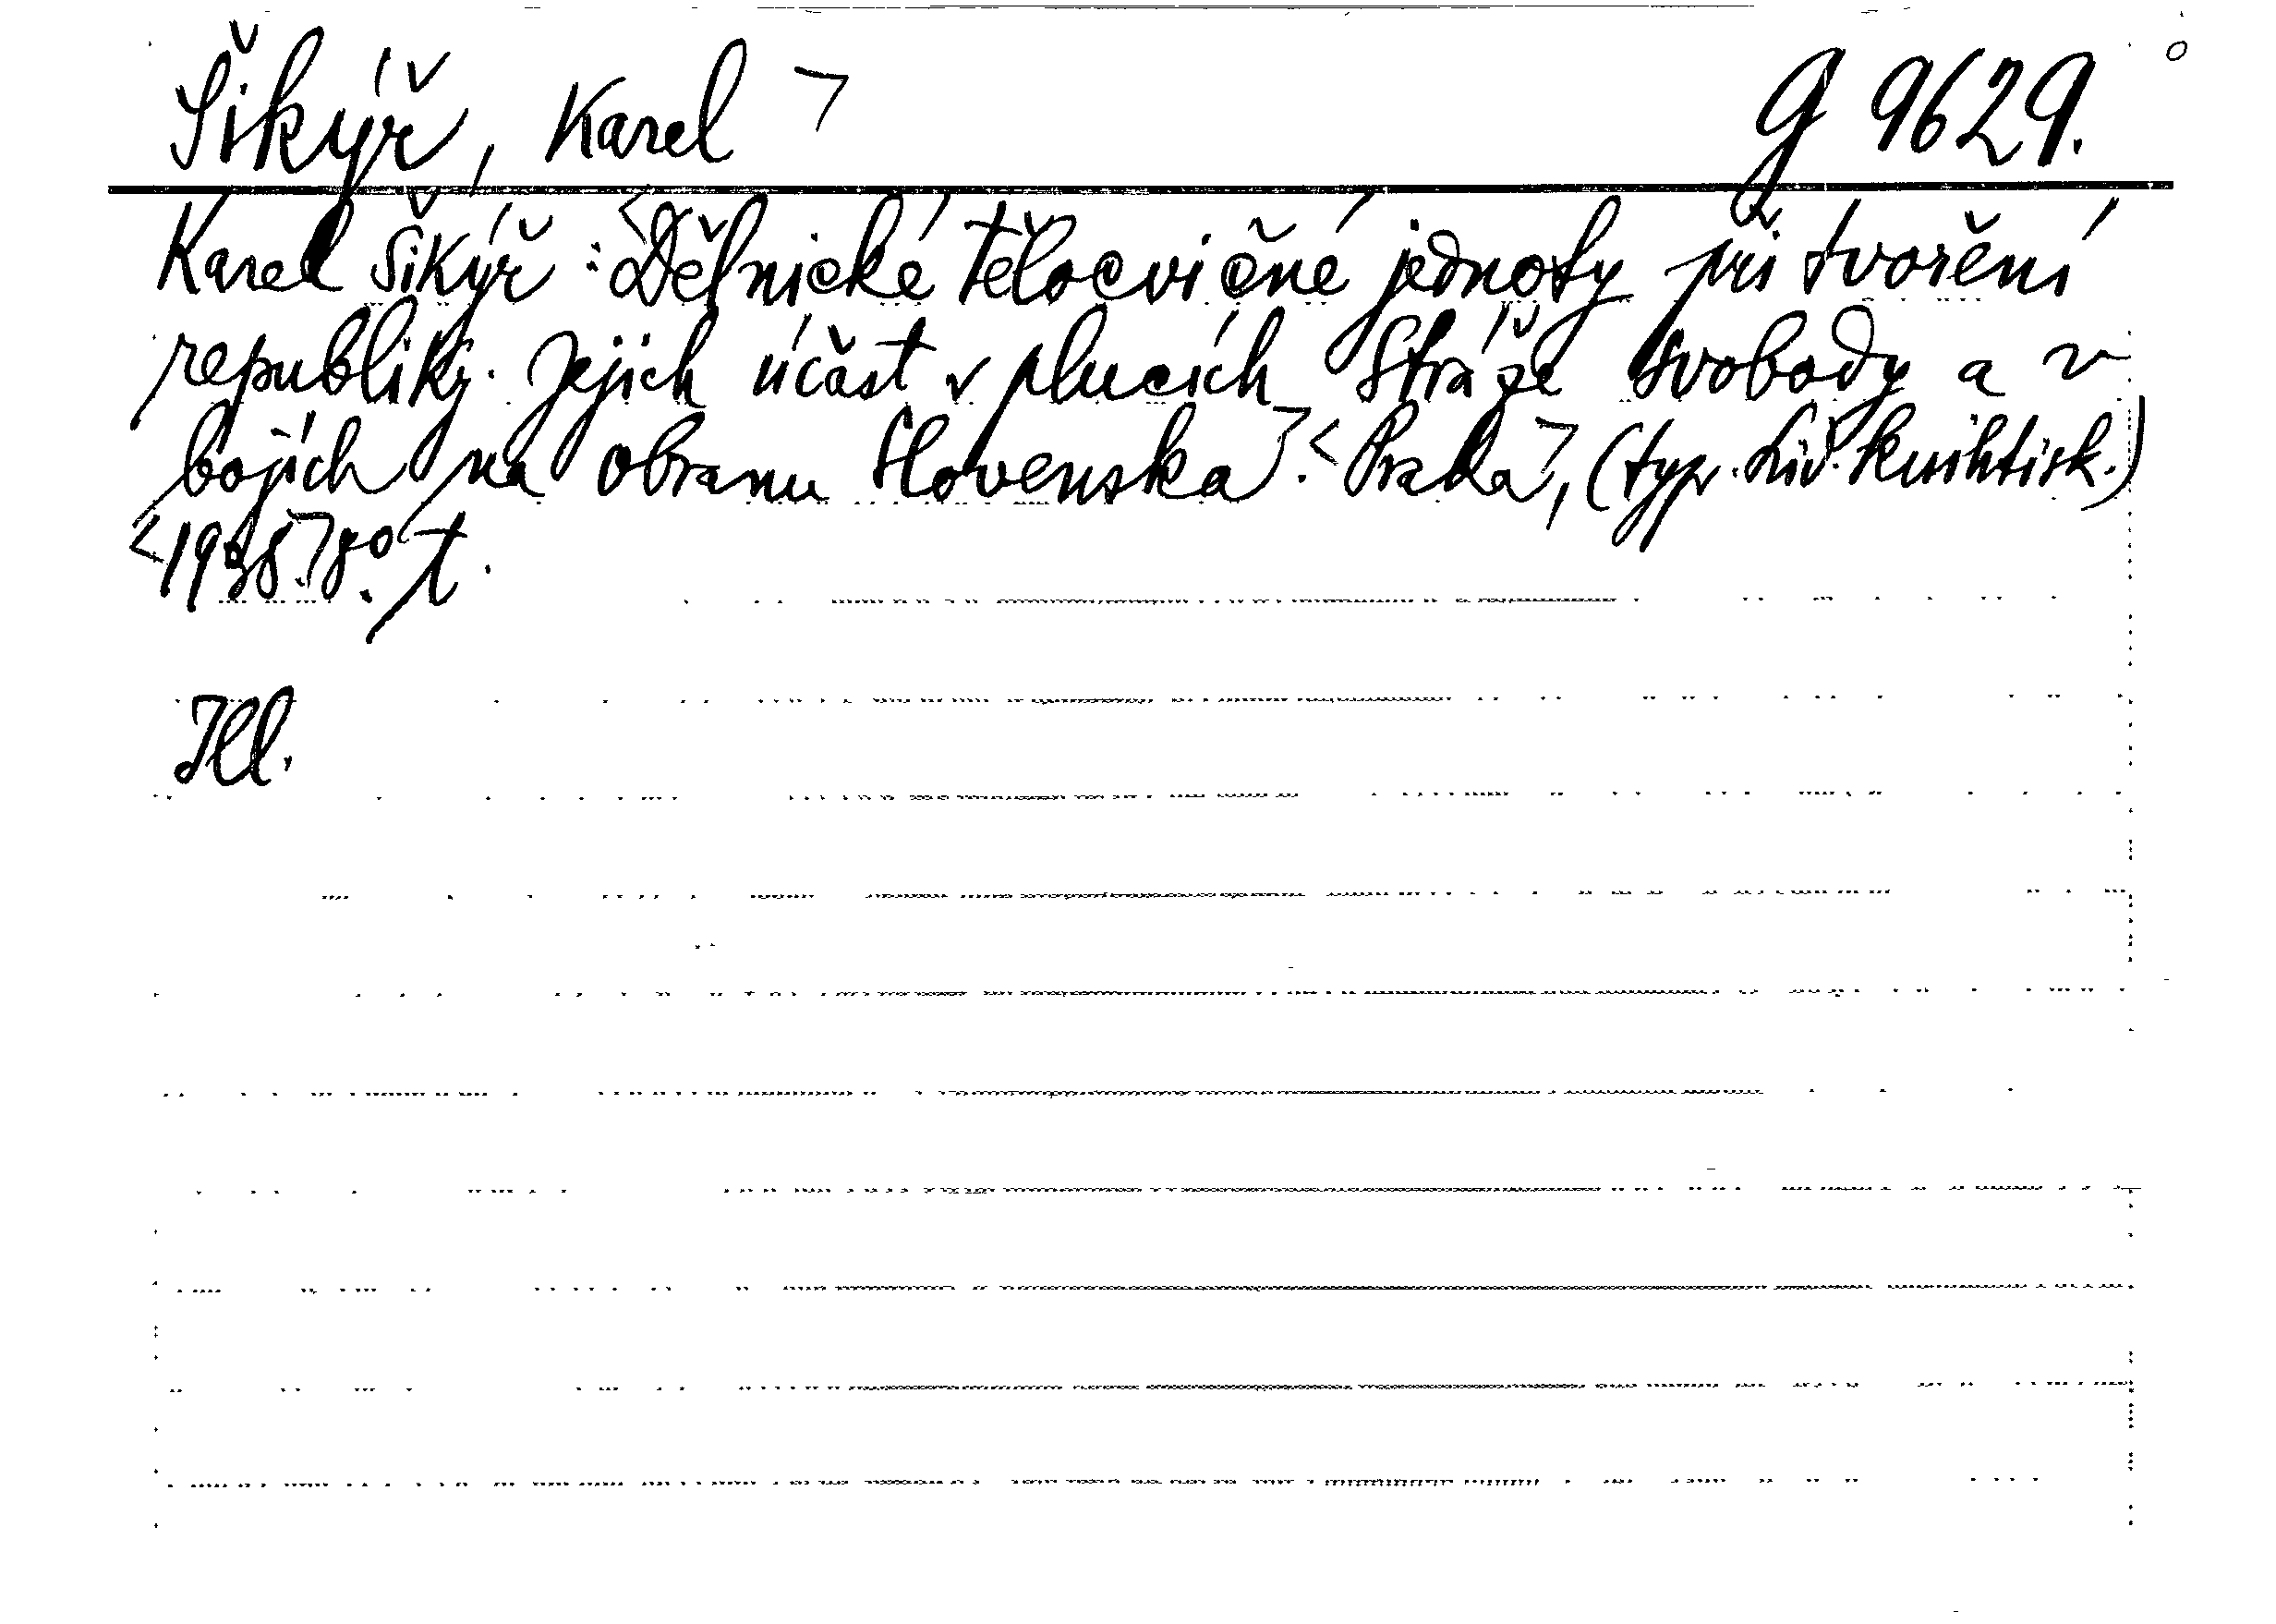 Šikýř, Karel > g 9629.
Karel Šikýř: <Dělnické tělocvičné jednoty při tvoření
republiky. Jejich účast v plucích Stráže svobody a v
bojích na obranu Slovenska>. <Praha>, (typ. Lid. knihtisk.)
<1938.> 8°. t.
Ill.